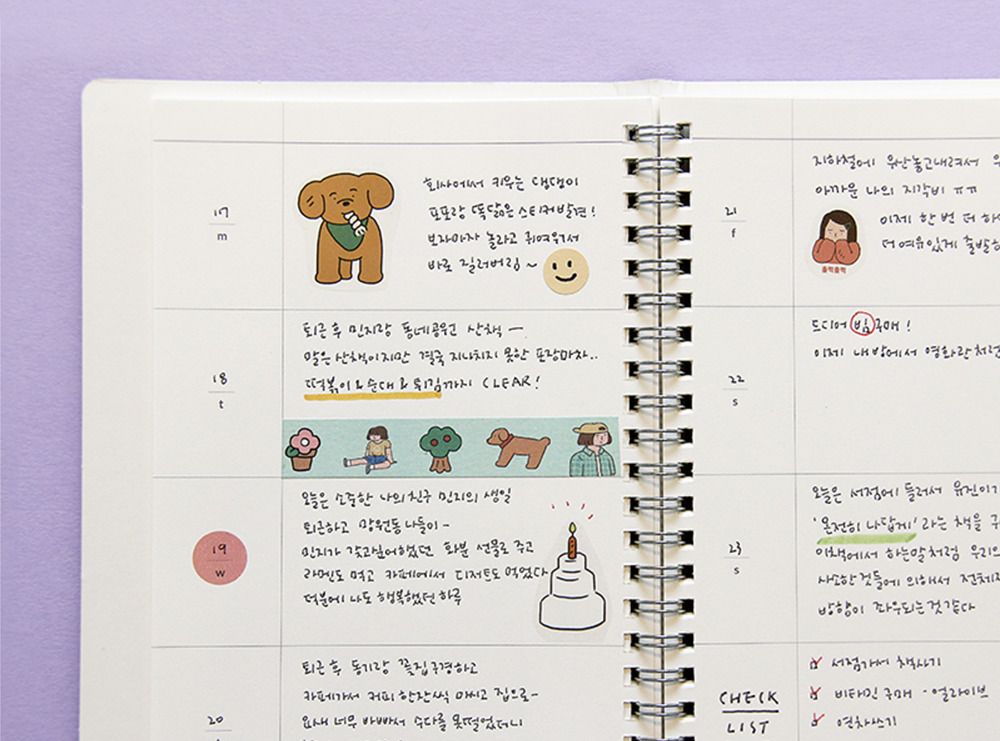 17
m
회사에서 키우는 댕댕이
포포랑 똑닮은 스티커발견!
보자마자 놀라고 귀여워서
바로 질러버림~
18
t
퇴근 후 민지랑 동네공원 산책 —
말은 산책이지만 결국 지나치지 못한 포장마차..
떡볶이 & 순대 & 튀김까지 CLEAR!
19
w
오늘은 소중한 나의 친구 민지의 생일
퇴근하고 망원동 나들이 -
민지가 갖고싶어했던 화분 선물로 주고
라멘도 먹고 카페에서 디저트도 먹었다
덕분에 나도 행복했던 하루
20
퇴근 후 동기랑 꽃집구경하고
카페가서 커피 한잔씩 마시고 집으로-
요새 너무 바빠서 수다를 못떨었더니
21
f
지하철에 우산놓고내려서
아까운 나의 지각비 ㅠㅠ
이제 한 번 더
더 여유있게 출발
훌쩍훌쩍
22
s
드디어 빔구매!
이제 내 방에서 영화관처럼
23
s
오늘은 서점에 들러서 유진이가
'온전히 나답게' 라는 책을
이책에서 하는말처럼 우리의
사소한것들에 의해서 전체
방향이 좌우되는것 같다
CHECK
LIST
서점가서 책사기
비타민 구매 - 얼라이브
연차쓰기